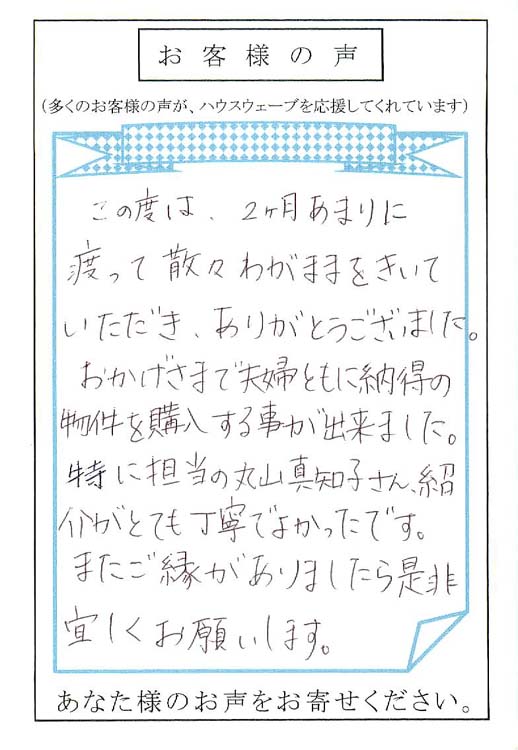 お客様の声
(多くのお客様の声が、ハウスウェーブを応援してくれています)
この度は、2ヶ月あまりに
渡って散々わがままをきいて
いただき、ありがとうございました。
おかげさまで夫婦ともに納得の
物件を購入する事が出来ました。
特に担当の丸山真知子さん、紹
介がとても丁寧でよかったです。
またご縁がありましたら是非
宜しくお願いします。
あなた様のお声をお寄せください。